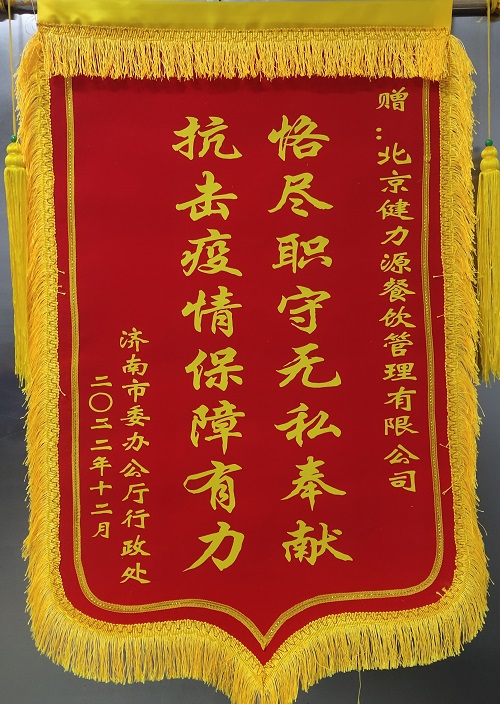 赠：北京健力源餐饮管理有限公司
恪尽职守无私奉献
抗击疫情保障有力
济南市委办公厅行政处
二〇二二年十二月